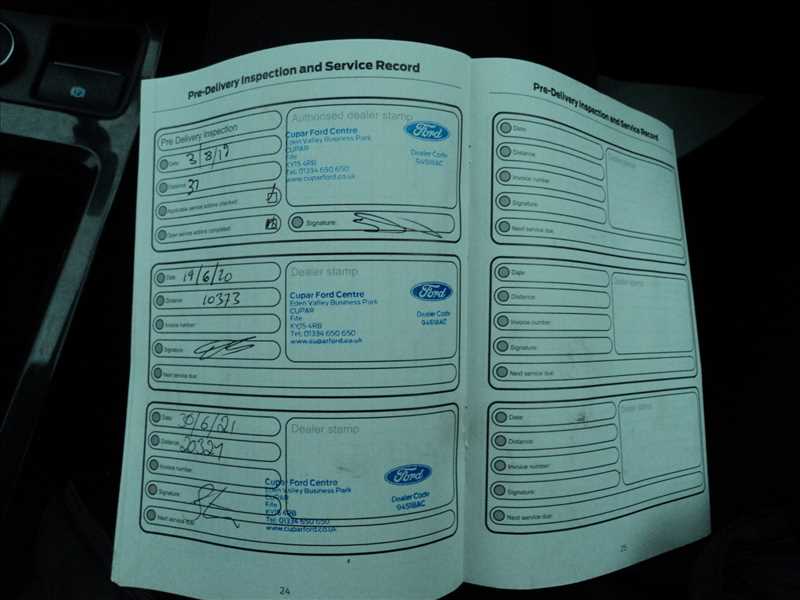 Pre-Delivery Inspection and Service Record
Pre Delivery Inspection
Date: 3/8/19
Distance: 37
Applicable service actions checked:
Open service actions completed:
Authorised dealer stamp
Cupar Ford Centre
Eden Valley Business Park
CUPAR
Fife
KY15 4RB
Tel: 01334 650 650
www.cuparford.co.uk
Ford
Dealer Code
94518AC
Signature:
Date: 19/6/20
Distance: 10373
Invoice number:
Signature:
Next service due:
Dealer stamp
Cupar Ford Centre
Eden Valley Business Park
CUPAR
Fife
KY15 4RB
Tel: 01334 650 650
www.cuparford.co.uk
Ford
Dealer Code
94518AC
Date: 30/6/21
Distance: 20321
Invoice number:
Signature:
Next service due:
Dealer stamp
Cupar Ford Centre
Eden Valley Business Park
CUPAR
Fife
KY15 4RB
Tel: 01334 650 650
www.cuparford.co.uk
Ford
Dealer Code
94518AC
24
Pre-Delivery Inspection and Service Record
Date:
Distance:
Invoice number:
Signature:
Next service due:
Dealer stamp
Date:
Distance:
Invoice number:
Signature:
Next service due:
Dealer stamp
Date:
Distance:
Invoice number:
Signature:
Next service due:
Dealer stamp
25